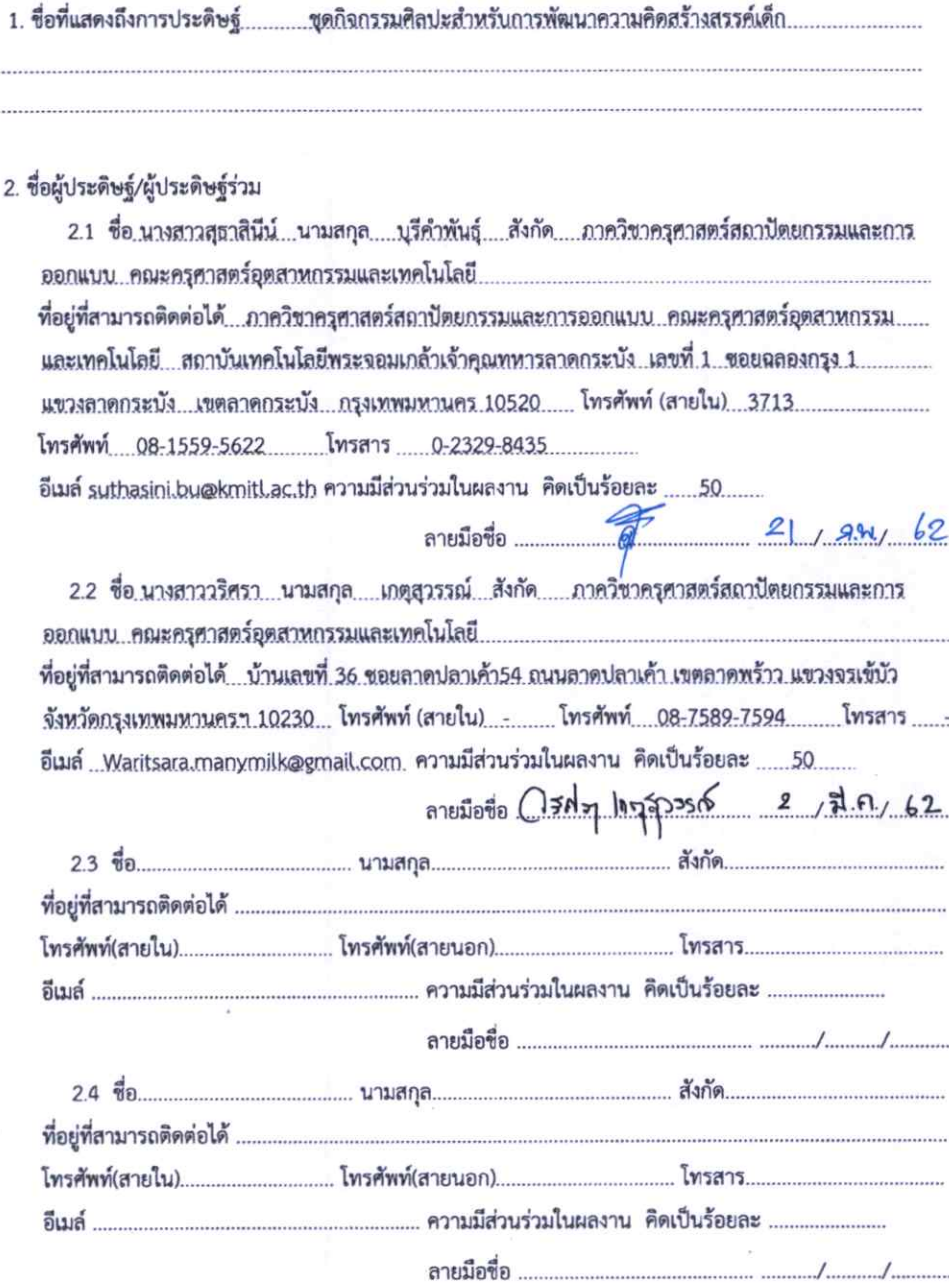 1. ชื่อที่แสดงถึงการประดิษฐ์ ชุดกิจกรรมศิลปะสำหรับการพัฒนาความคิดสร้างสรรค์เด็ก
2. ชื่อผู้ประดิษฐ์/ผู้ประดิษฐ์ร่วม
2.1 ชื่อ นางสาวสุธาสินีน์ นามสกุล บุรีคำพันธุ์ สังกัด ภาควิชาครุศาสตร์สถาปัตยกรรมและการ
ออกแบบ คณะครุศาสตร์อุตสาหกรรมและเทคโนโลยี
ที่อยู่ที่สามารถติดต่อได้ ภาควิชาครุศาสตร์สถาปัตยกรรมและการออกแบบ คณะครุศาสตร์อุตสาหกรรม
และเทคโนโลยี สถาบันเทคโนโลยีพระจอมเกล้าเจ้าคุณทหารลาดกระบัง เลขที่ 1 ซอยฉลองกรุง 1
แขวงลาดกระบัง เขตลาดกระบัง กรุงเทพมหานคร 10520 โทรศัพท์ (สายใน) 3713
โทรศัพท์ 08-1559-5622 โทรสาร 0-2329-8435
อีเมล์ suthasini.bu@kmitl.ac.th ความมีส่วนร่วมในผลงาน คิดเป็นร้อยละ 50
ลายมือชื่อ 21 / ก.พ. / 62
2.2 ชื่อ นางสาววริศรา นามสกุล เกตุสุวรรณ์ สังกัด ภาควิชาครุศาสตร์สถาปัตยกรรมและการ
ออกแบบ คณะครุศาสตร์อุตสาหกรรมและเทคโนโลยี
ที่อยู่ที่สามารถติดต่อได้ บ้านเลขที่ 36 ซอยลาดปลาเค้า54 ถนนลาดปลาเค้า เขตลาดพร้าว แขวงจรเข้บัว
จังหวัดกรุงเทพมหานครฯ 10230 โทรศัพท์ (สายใน) - โทรศัพท์ 08-7589-7594 โทรสาร -
อีเมล์ Waritsara.manymilk@gmail.com ความมีส่วนร่วมในผลงาน คิดเป็นร้อยละ 50
ลายมือชื่อ วริศรา เกตุสุวรรณ์ 2 / มี.ค. / 62
2.3 ชื่อ นามสกุล สังกัด
ที่อยู่ที่สามารถติดต่อได้
โทรศัพท์(สายใน) โทรศัพท์(สายนอก) โทรสาร
อีเมล์ ความมีส่วนร่วมในผลงาน คิดเป็นร้อยละ
ลายมือชื่อ / /
2.4 ชื่อ นามสกุล สังกัด
ที่อยู่ที่สามารถติดต่อได้
โทรศัพท์(สายใน) โทรศัพท์(สายนอก) โทรสาร
อีเมล์ ความมีส่วนร่วมในผลงาน คิดเป็นร้อยละ
ลายมือชื่อ / /